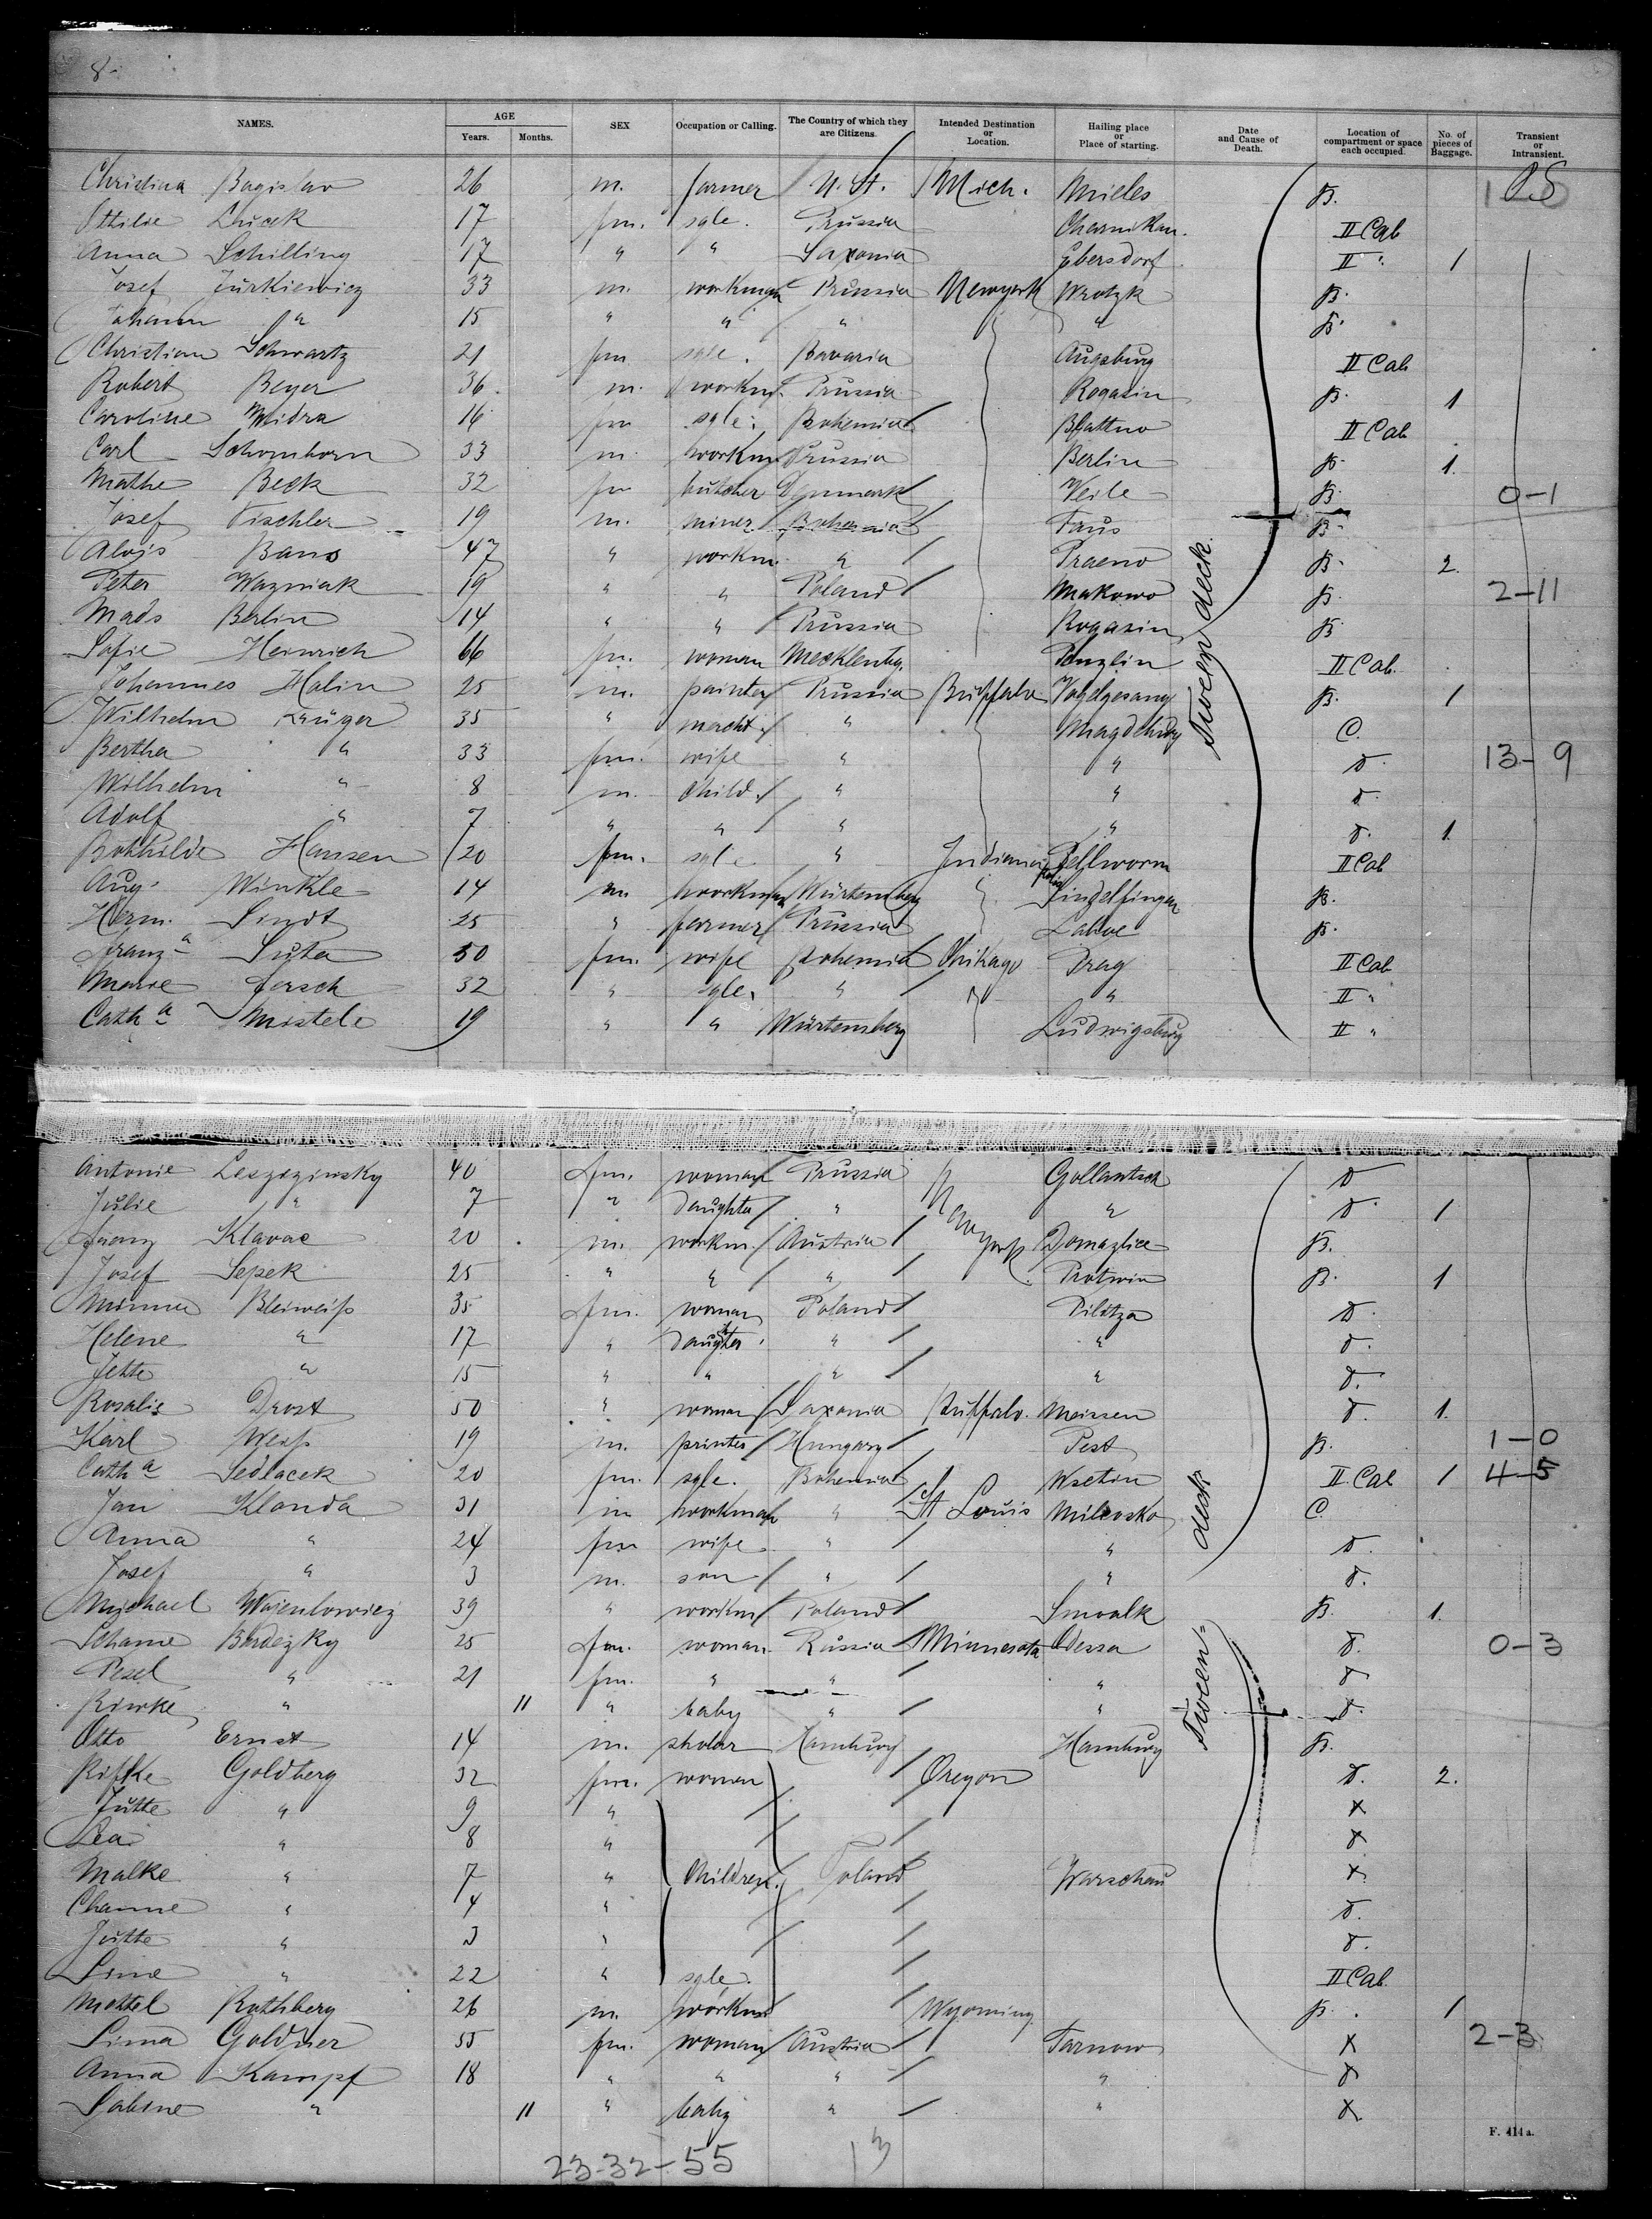 8.
NAMES. AGE Years. Months. SEX Occupation or Calling. The Country of which they are Citizens. Intended Destination or Location. Hailing place or Place of starting. Date and Cause of Death. Location of compartment or space each occupied. No. of pieces of Baggage. Transient or Intransient.
Christina Bagislav 26 m. farmer U. St. Mich. Mieles B.
Ottilie 17 fm. sgle. Prussia Charnikau. II Cab
Anna Schilling 17 " " Saxonia Ebersdorf II " 1
Josef Jurkiewicz 33 m. workman Prussia Newyork Wrotzk B.
Johann " 15 " " " " B.
Christian Schwartz 21 fm sgle. Bavaria Augsburg II Cab
Robert Beyer 36. m. workm. Prussia Rogasin B. 1
Caroline Widra 16 fm sgle. Bohemia Blattno II Cab
Carl Schomhorn 33 m. workm Prussia Berlin B. 1.
Mathe Beck 32 fm butcher Denmark Veile B. 0-1
Josef Tischler 19 m. miner Bohemia Taus B.
Alojs Bans 47 " workm. " Praeno B. 2.
Peter Wazniak 19 " " Poland Makowo B. 2-11
Mads Berlin 14 " " Prussia Rogasin B
Sofie Heinrich 66 fm. woman Mecklenbg. Penzlin II Cab.
Johannes Halin 25 m. painter Prussia Buffalo Vogelgesang B. 1
Wilhelm Krüger 35 " mercht. " Magdeburg C.
Bertha " 33 fm. wife " " D. 13-9
Wilhelm " 8 m. child. " " D.
Adolf " 7 " " " " D. 1.
Bothilde Hansen 20 fm. sgle " Indianapolis Pellworm II Cab
Aug. Winkle 14 m. workman Würtemberg Sindelfingen B.
Herm. Lindt 25 " farmer Prussia Lahoe B.
Franz a Suta 50 fm. wife Bohemia Chikago Prag II Cab
Marie Jersch 32 " sgle. " " " II "
Cath a Mistele 19 " " Würtemberg Ludwigsburg II "
Tween deck.
Antonie Leszczinsky 40 fm. woman Prussia Newyork Gollantsch D
Julie " 7 " daughter " " D. 1
Franz Klavac 20 m. workm. Austria Domazlice B.
Josef Sepek 25 " " " Protwin B. 1
Minna Bleiweiß 35 fm. woman Poland Pilitza D.
Helene " 17 " daughter " " D.
Jette " 15 " " " " D.
Rosalie Drost 50 " woman Saxonia Buffalo. Meissen D. 1.
Karl Weiß 19 m. printer Hungary Pest B. 1-0
Cath a Sedlacek 20 fm. sgle. Bohemia Wsetin II. Cab 1 4-5
Jan Klanda 31 m workman " St Louis Milevsko C
Anna " 24 fm wife " " D.
Josef " 3 m. son " " D.
Michael Wojenlowicz 39 " workm Poland Suwalk B. 1.
Schame Bordezky 25 fm. woman Russia Minnesota Odessa D. 0-3
Pesel " 21 fm. " " " D
Riwke " 11 " baby " " D.
Otto Ernst 14 m. skolar Hamburg Hamburg B.
Rifke Goldberg 32 fm. woman Oregon D. 2.
Jütte " 9 " X
Lea " 8 " X
Malke " 7 " Children. Poland Warschau X
Channe " 4 " D.
Jütte " 3 " D.
Sime " 22 " sgle. II Cab
Mottel Rothberg 26 m. workm Wyoming B. 1
Sima Goldner 55 fm. woman Austria Tarnow X 2-3
Anna Kampf 18 " " " " D
Sabine " 11 " baby " " X
Tween deck
F. 414 a.
23-32-55 13